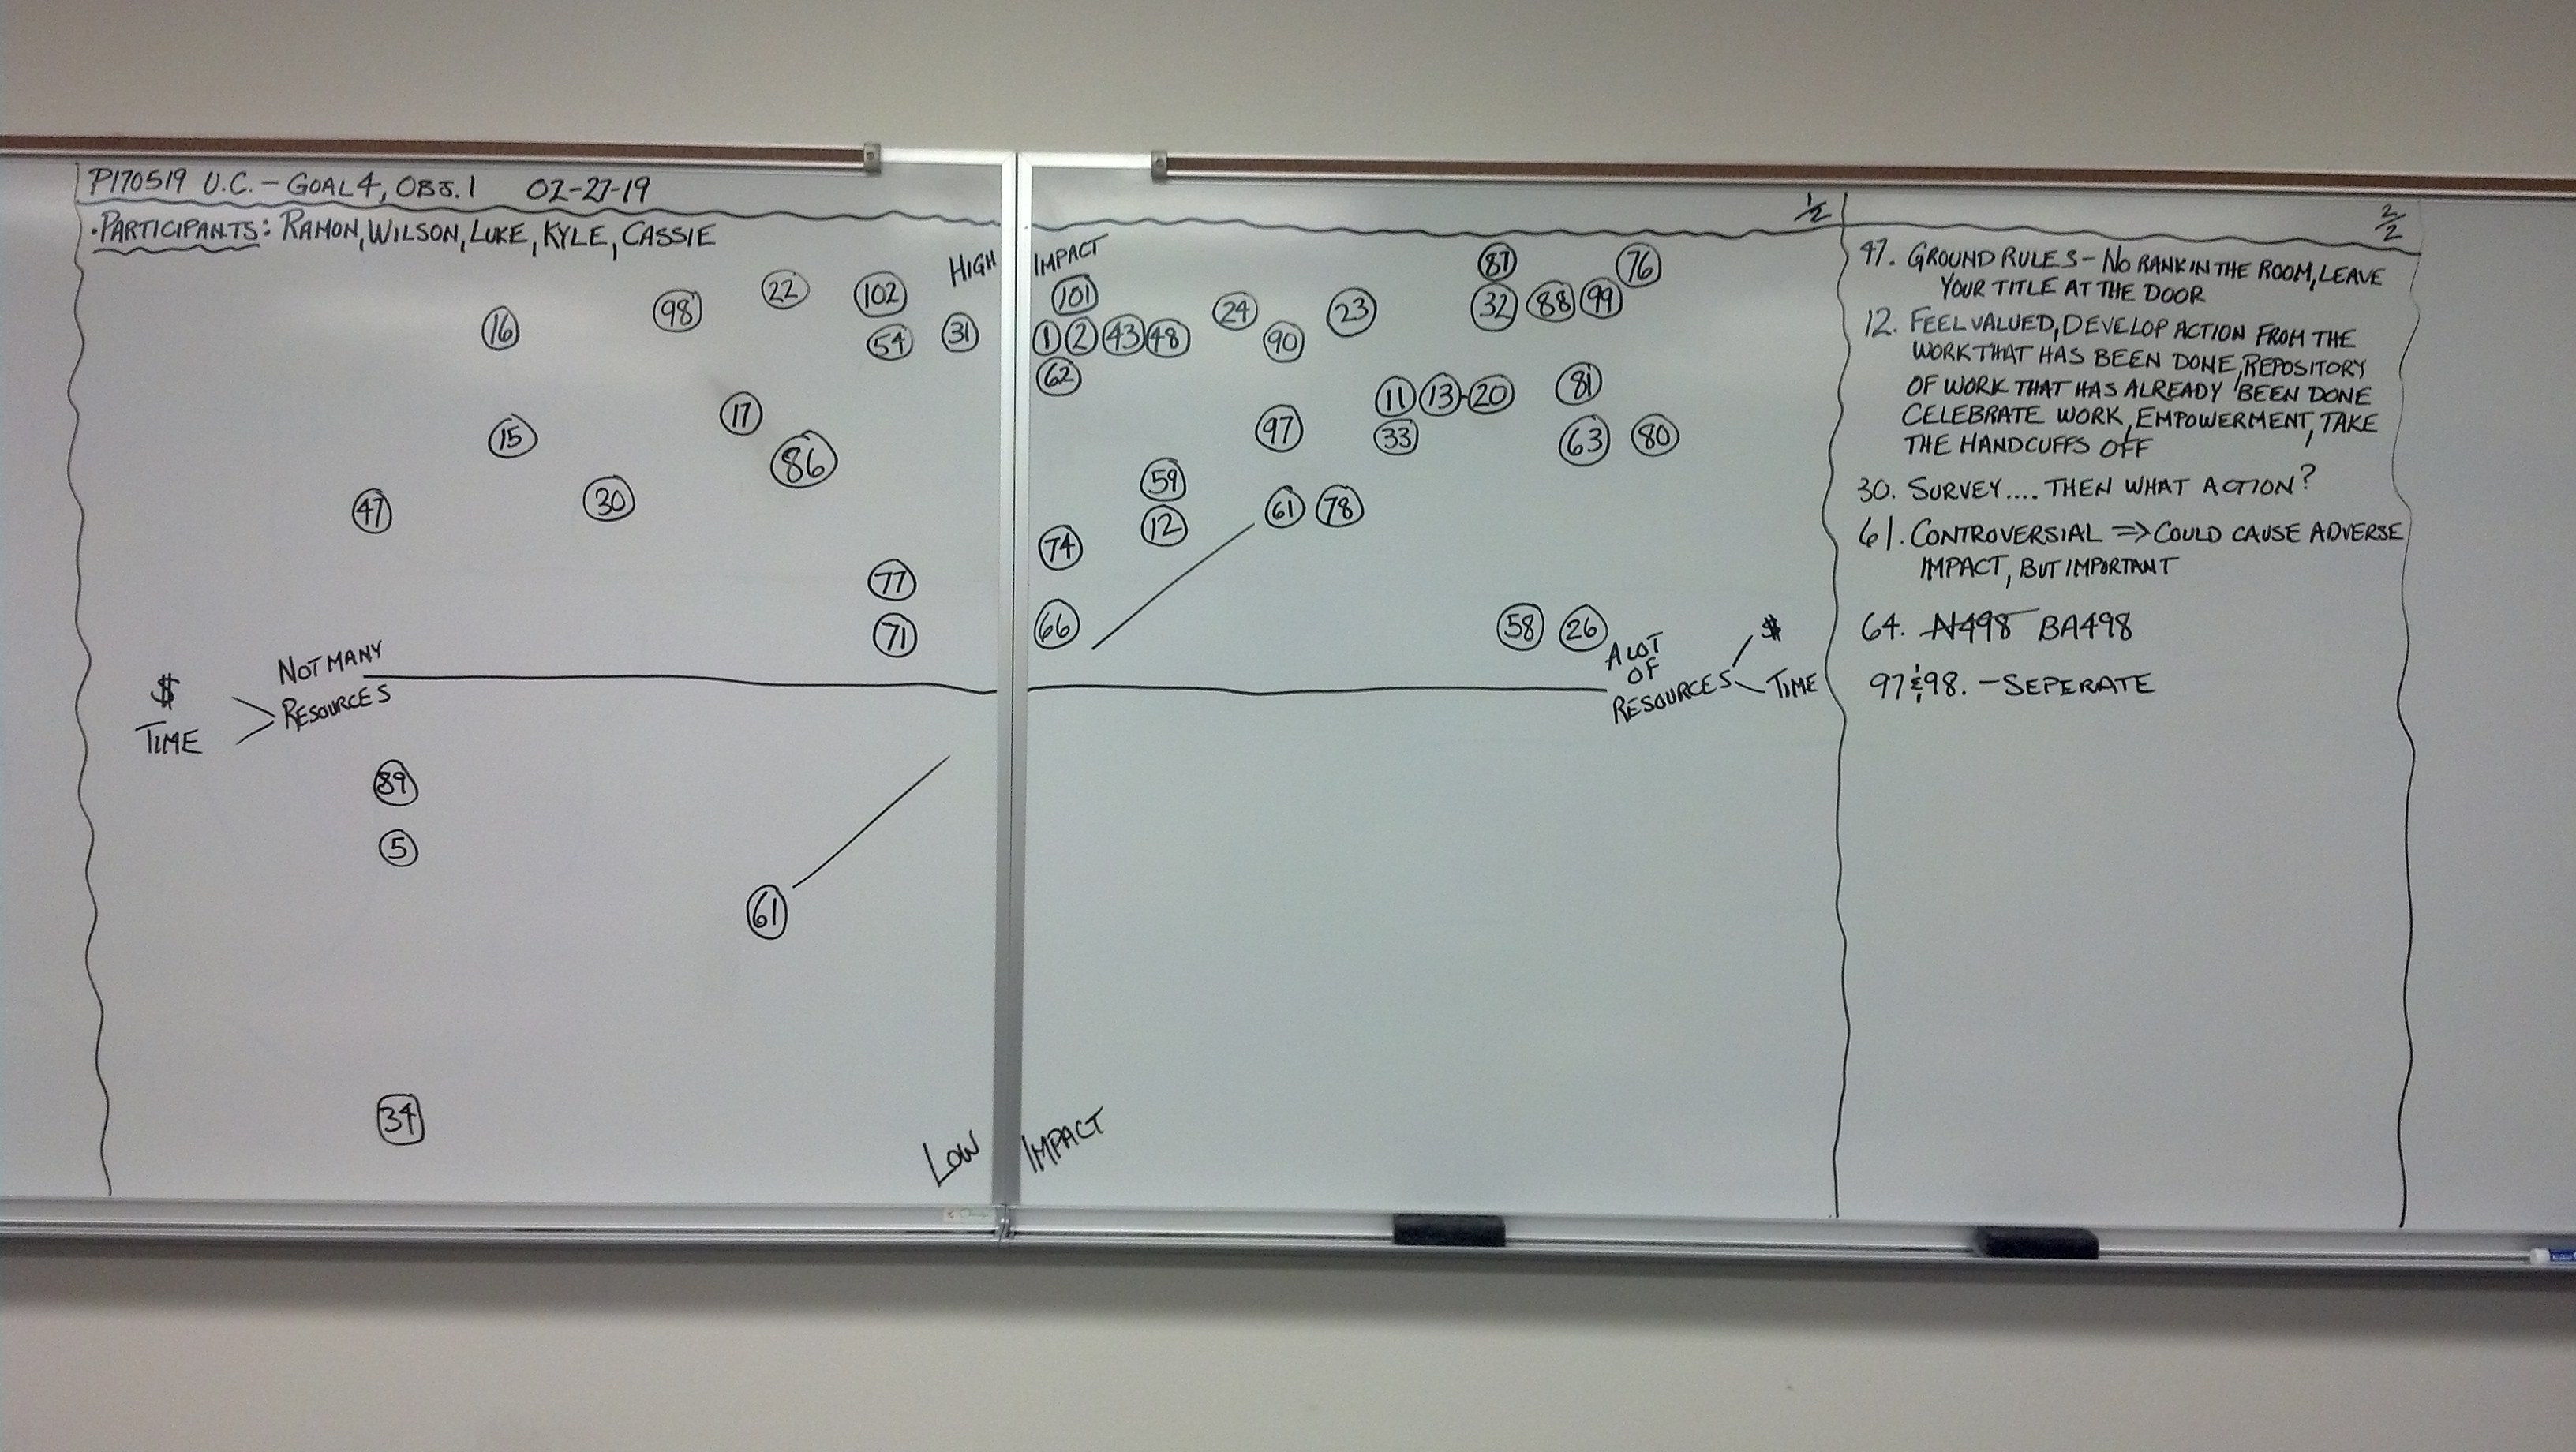 P170519 U.C. - GOAL 4, OBJ. 1 02-27-19
1/2
2/2
•PARTICIPANTS: RAMON, WILSON, LUKE, KYLE, CASSIE
HIGH IMPACT
87 76
16 98 22 102 101 24 23 32 88 99
54 31 1 2 43 48 90
62
11 13-20 81
15 17 86 97 33 63 80
59
47 30 12 61 78
74
77
71 66 58 26
NOT MANY
RESOURCES
$
TIME
A LOT
OF
RESOURCES
$
TIME
89
5
61
34
LOW IMPACT
47. GROUND RULES - NO RANK IN THE ROOM, LEAVE
YOUR TITLE AT THE DOOR
12. FEEL VALUED, DEVELOP ACTION FROM THE
WORK THAT HAS BEEN DONE, REPOSITORY
OF WORK THAT HAS ALREADY BEEN DONE
CELEBRATE WORK, EMPOWERMENT, TAKE
THE HANDCUFFS OFF
30. SURVEY.... THEN WHAT ACTION?
61. CONTROVERSIAL => COULD CAUSE ADVERSE
IMPACT, BUT IMPORTANT
64. N498 BA498
97 & 98. - SEPERATE